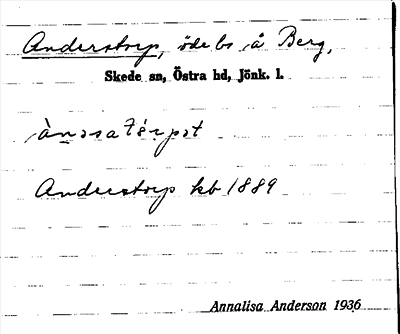 Anderstorp, öde bs å Berg,
Skede sn, Östra hd, Jönk. l.
Anderstorp kb 1889
Annalisa Anderson 1936